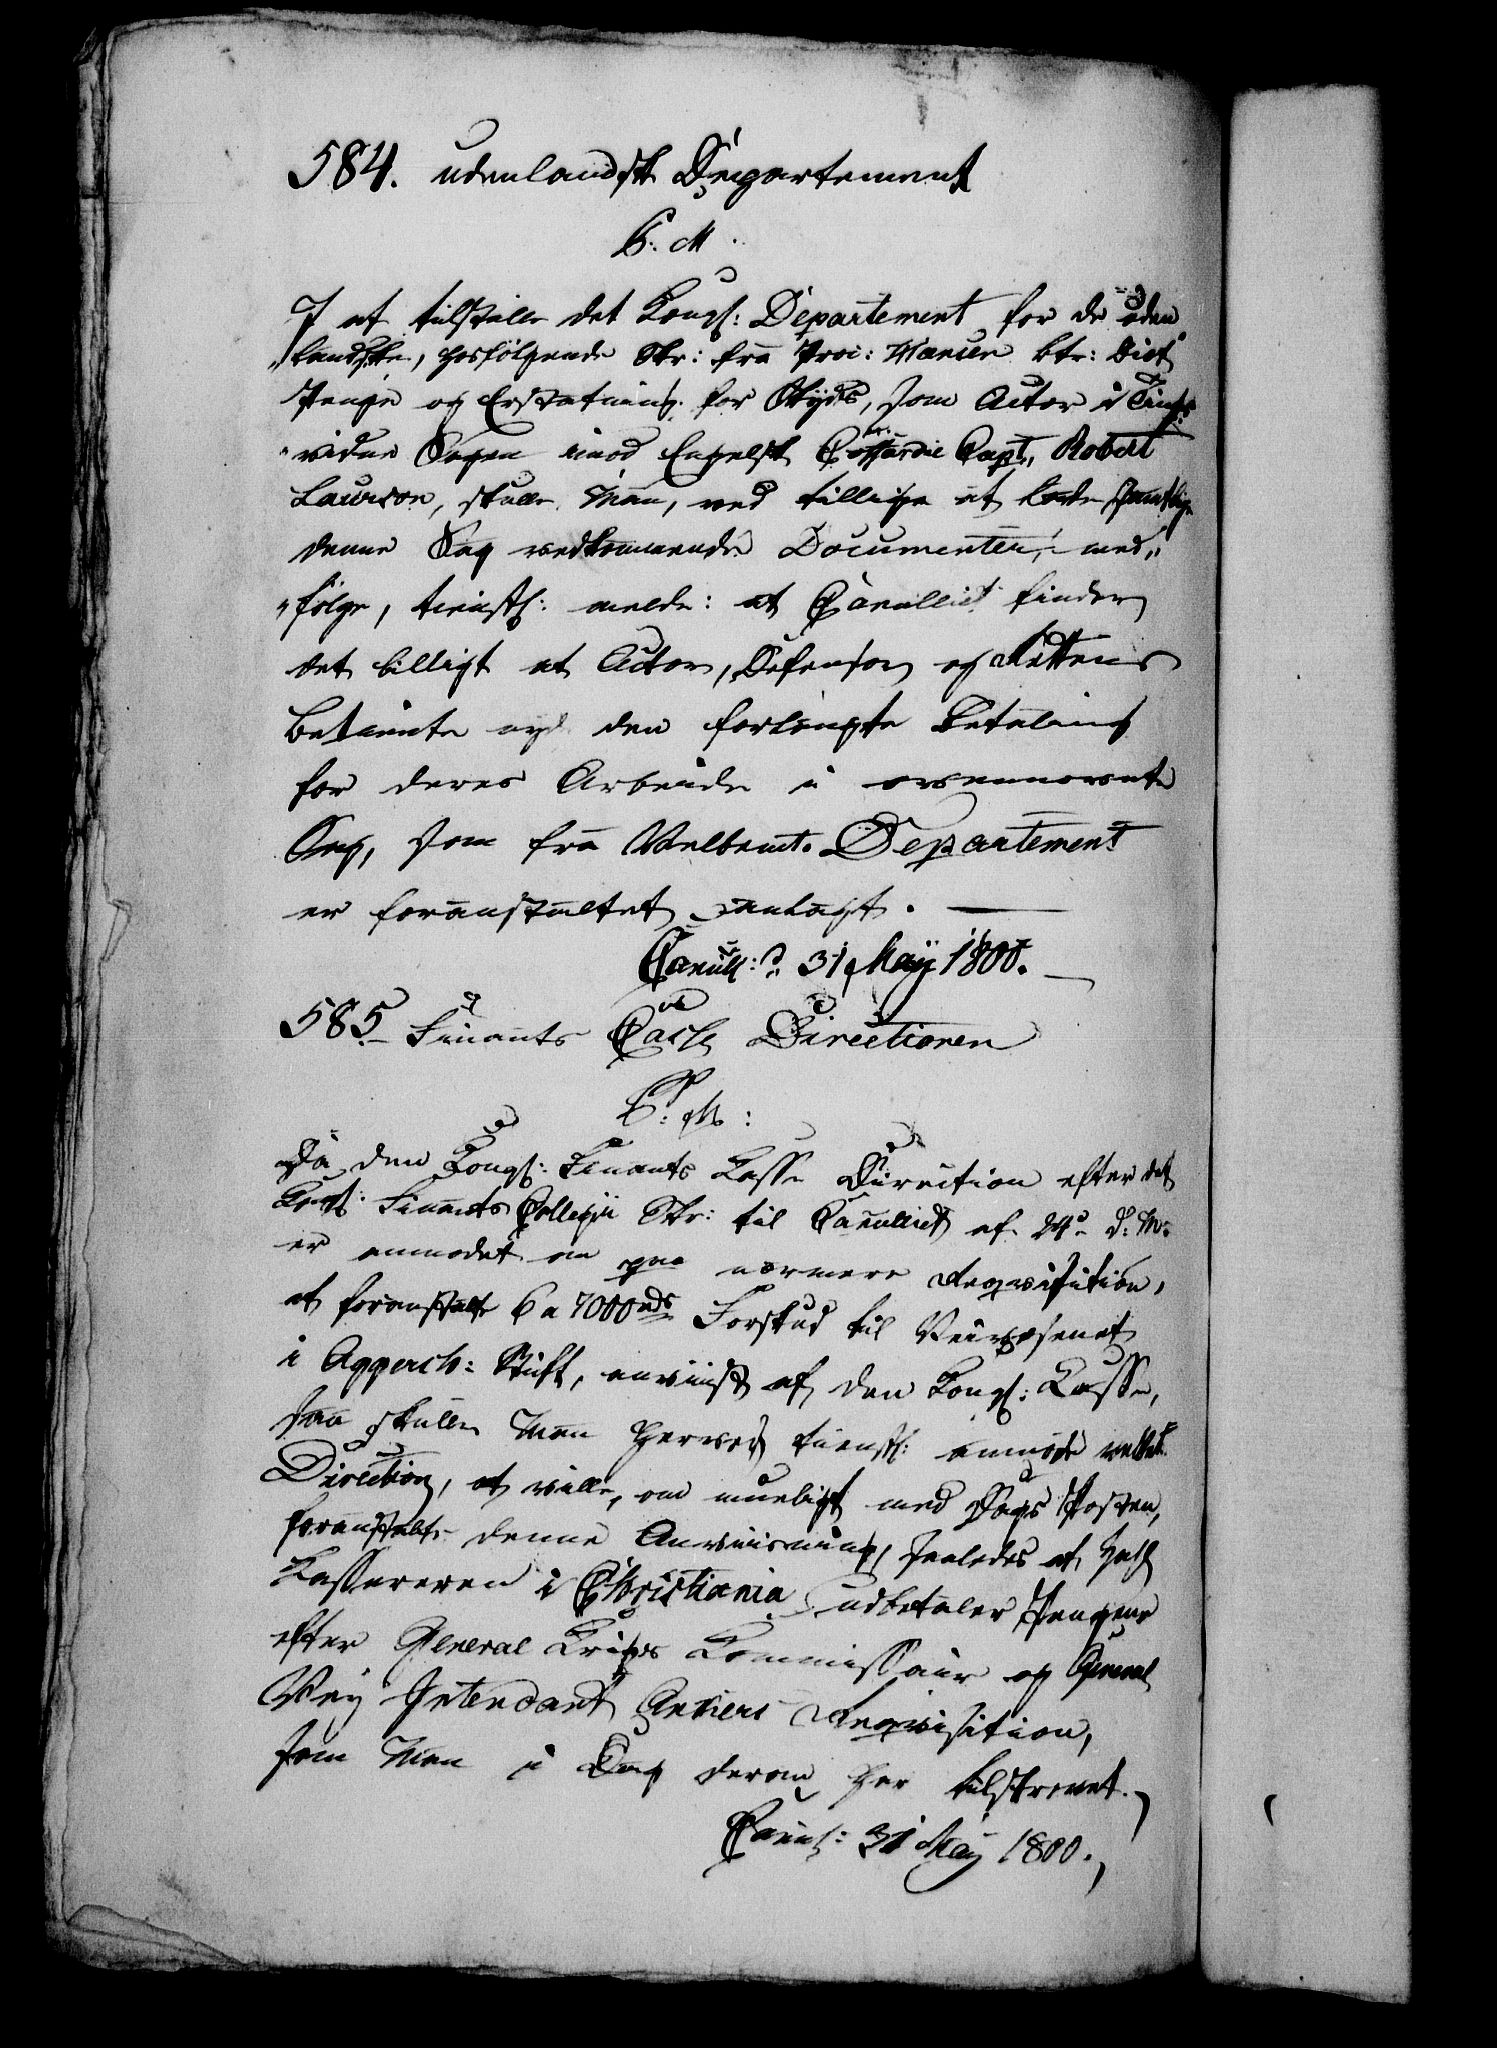 584. udenlandsk Departement
P: M.
I at tilstille det Kongl: Departement for de uden
„landske, hosfølgende Skr: fra Proc: Mansen btr: Diet
Penge og Erstatning for Skyds, som Actor i Tings
„vidne Sagen imod Engelsk Capt. Robert
Laurson, skulle Man, ved tillige at lade samtlige
denne Sag vedkommende Documenter, med„
„følge, tienstl: melde: at Cancelliet finder
det billigt at Actor, Defensor og Rettens
Betiente nyde den forlangte Betaling
for deres Arbeide i ovennævnte
Sag, som fra Velbemte. Departement
er foranstaltet anlagt.
Cancll: d. 31 Maÿ 1800.
585. Finants Casse Directionen
P: M:
Da den Kongl: Finants Kasse Direction efter det
Kongl: Finants Collegii Skr: til Cancelliet af 24de d: M:
er anmodet om paa nærmere Reqvisition,
at foranstalte 6 a 7000 rds Forskud til Veivæsenet
i Aggersh: Stift, anviist af den Kongl: Kasse,
saa skulle Man herved tienstl: anmode velbte.
Direction, at ville, om mueligt med Dags Posten,
foranstalte denne Anviisning, saaledes at Zahl
Kassereren i Christiania udbetaler Pengene
efter General Krigs Kommissair og General
Vej Intendant Ankers Reqvisition,
som Man i Dag derom har tilskrevet.
Cancl: 31 Maÿ 1800.